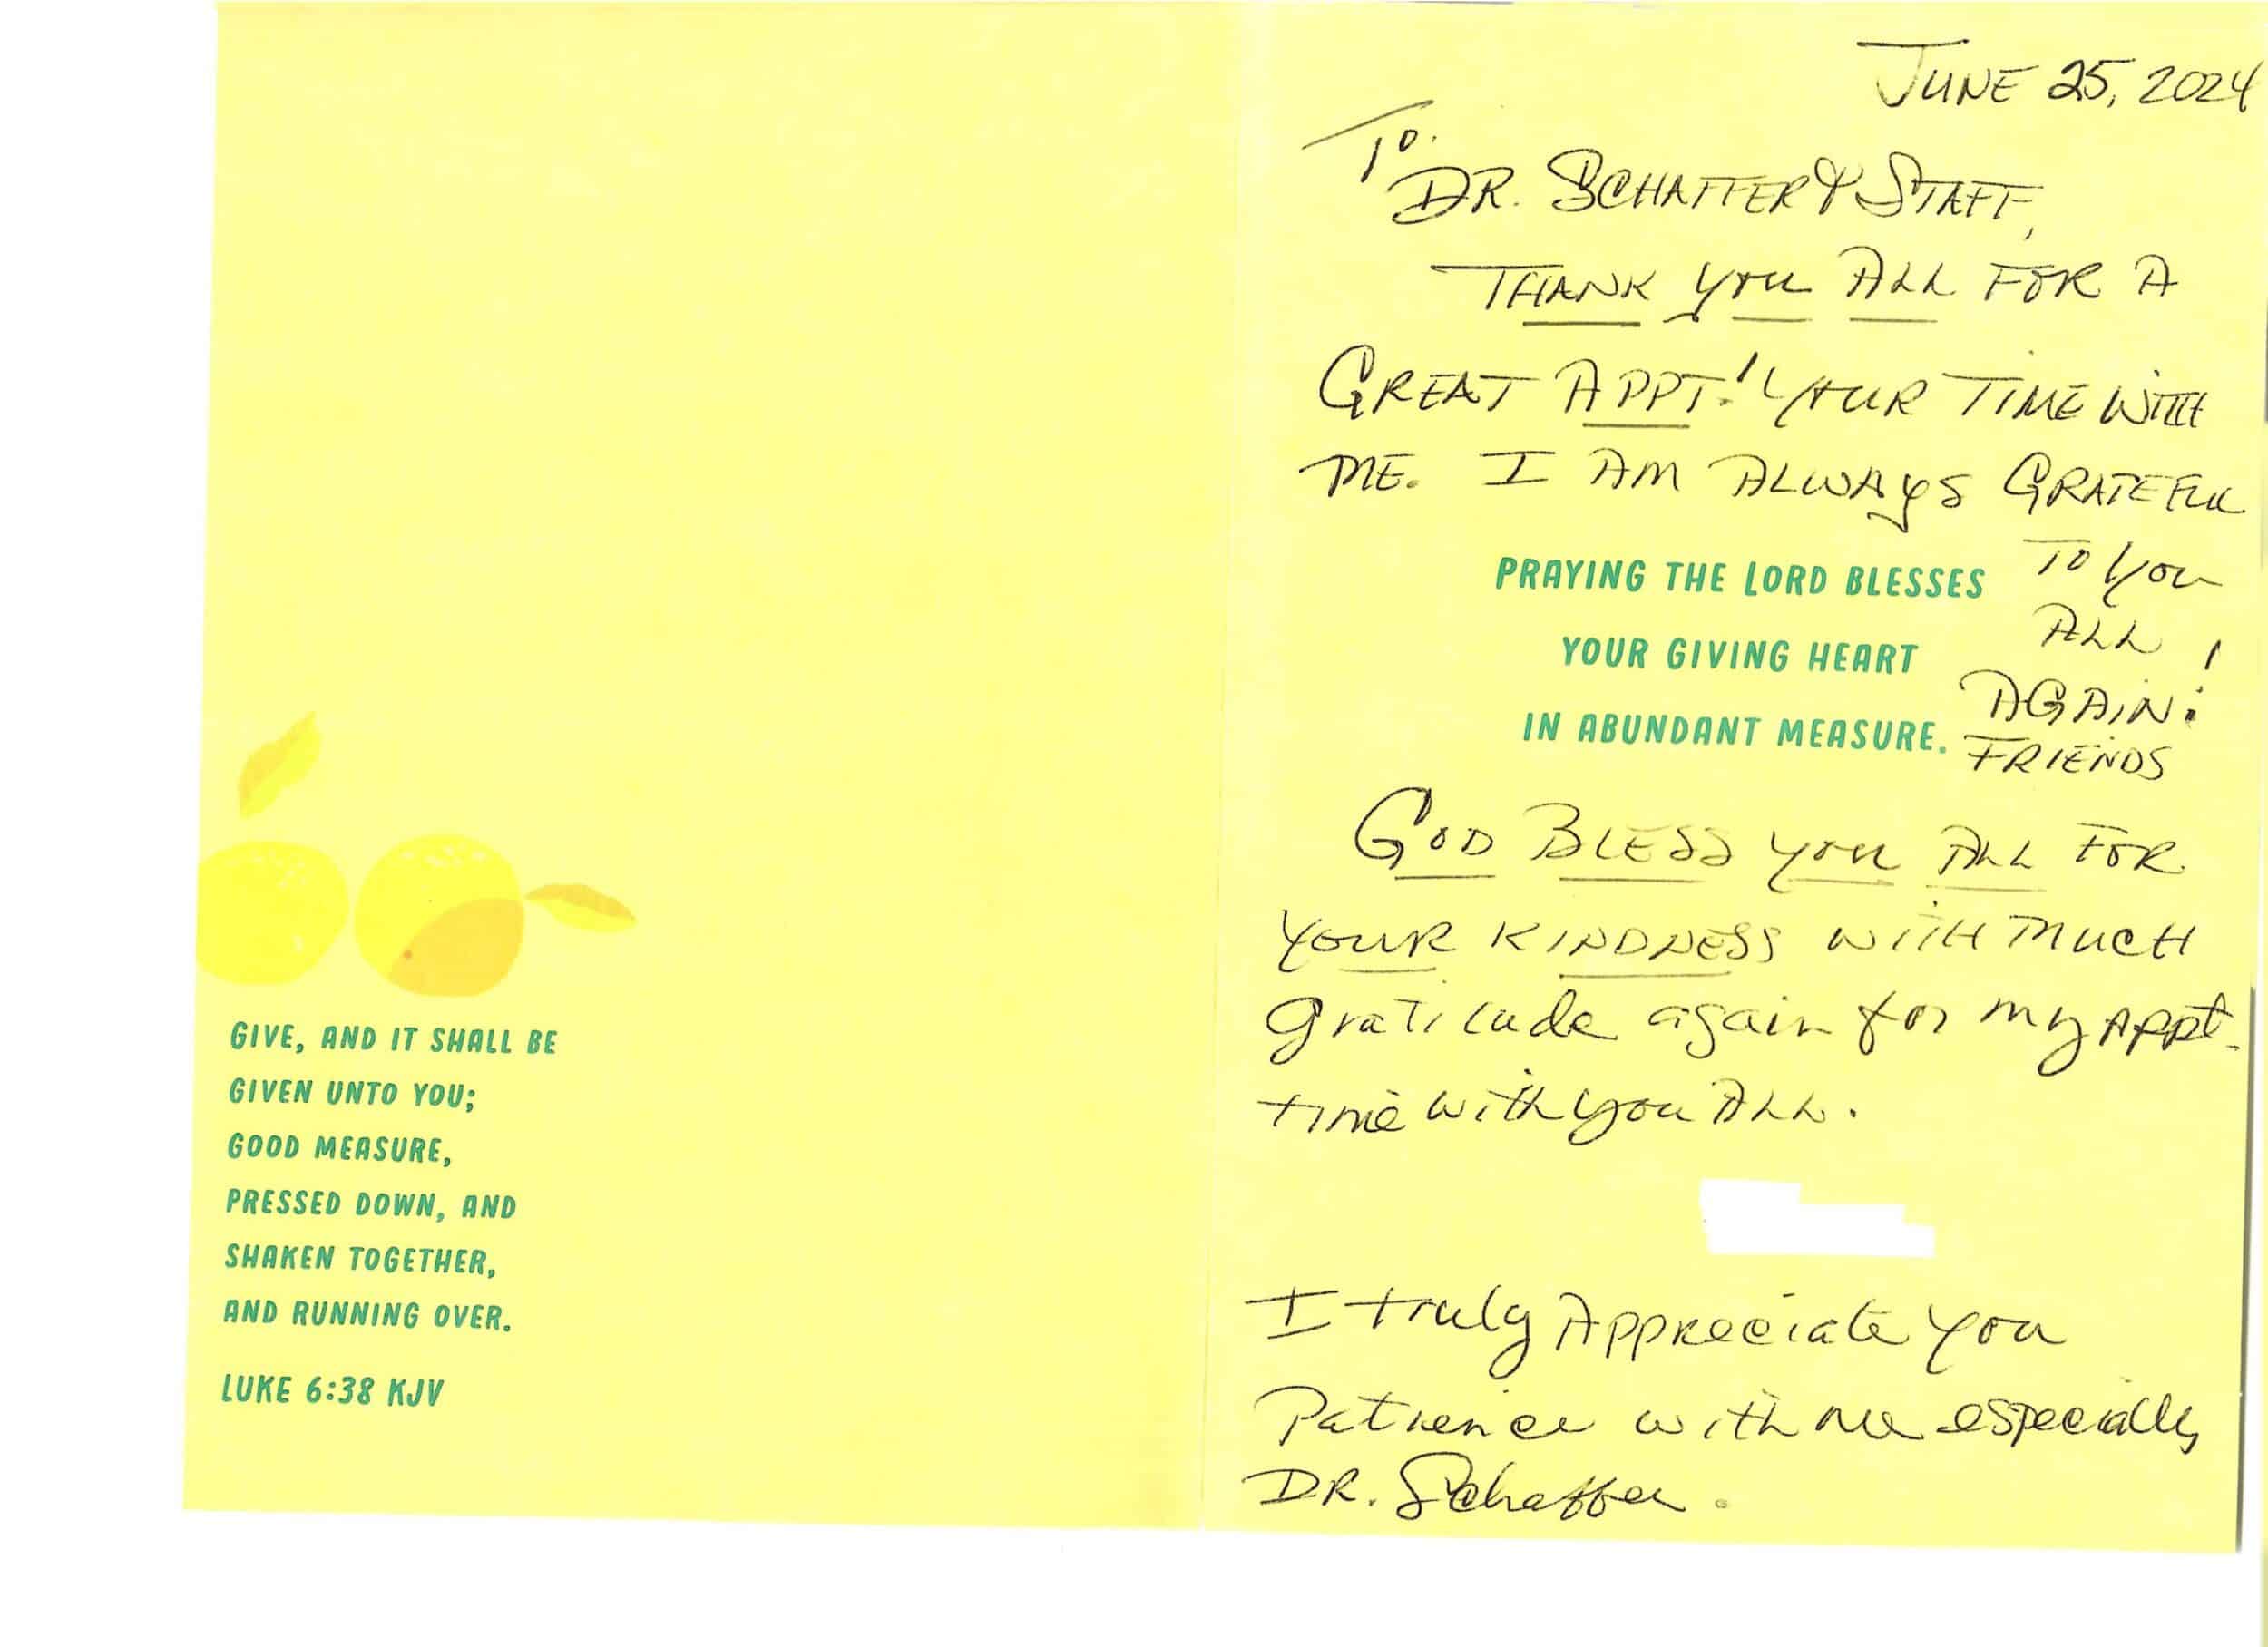 GIVE, AND IT SHALL BE
GIVEN UNTO YOU;
GOOD MEASURE,
PRESSED DOWN, AND
SHAKEN TOGETHER,
AND RUNNING OVER.
LUKE 6:38 KJV
JUNE 25, 2024
TO.
DR. SCHAFFER & STAFF,
THANK YOU ALL FOR A
GREAT APPT.! YOUR TIME WITH
ME. I AM ALWAYS GRATEFUL
TO YOU
ALL
AGAIN!
FRIENDS
PRAYING THE LORD BLESSES
YOUR GIVING HEART
IN ABUNDANT MEASURE.
GOD BLESS YOU ALL FOR
YOUR KINDNESS WITH MUCH
gratitude again for my APPt.
time with you ALL.
I truly Appreciate you
Patience with me especially
DR. Schaffer.